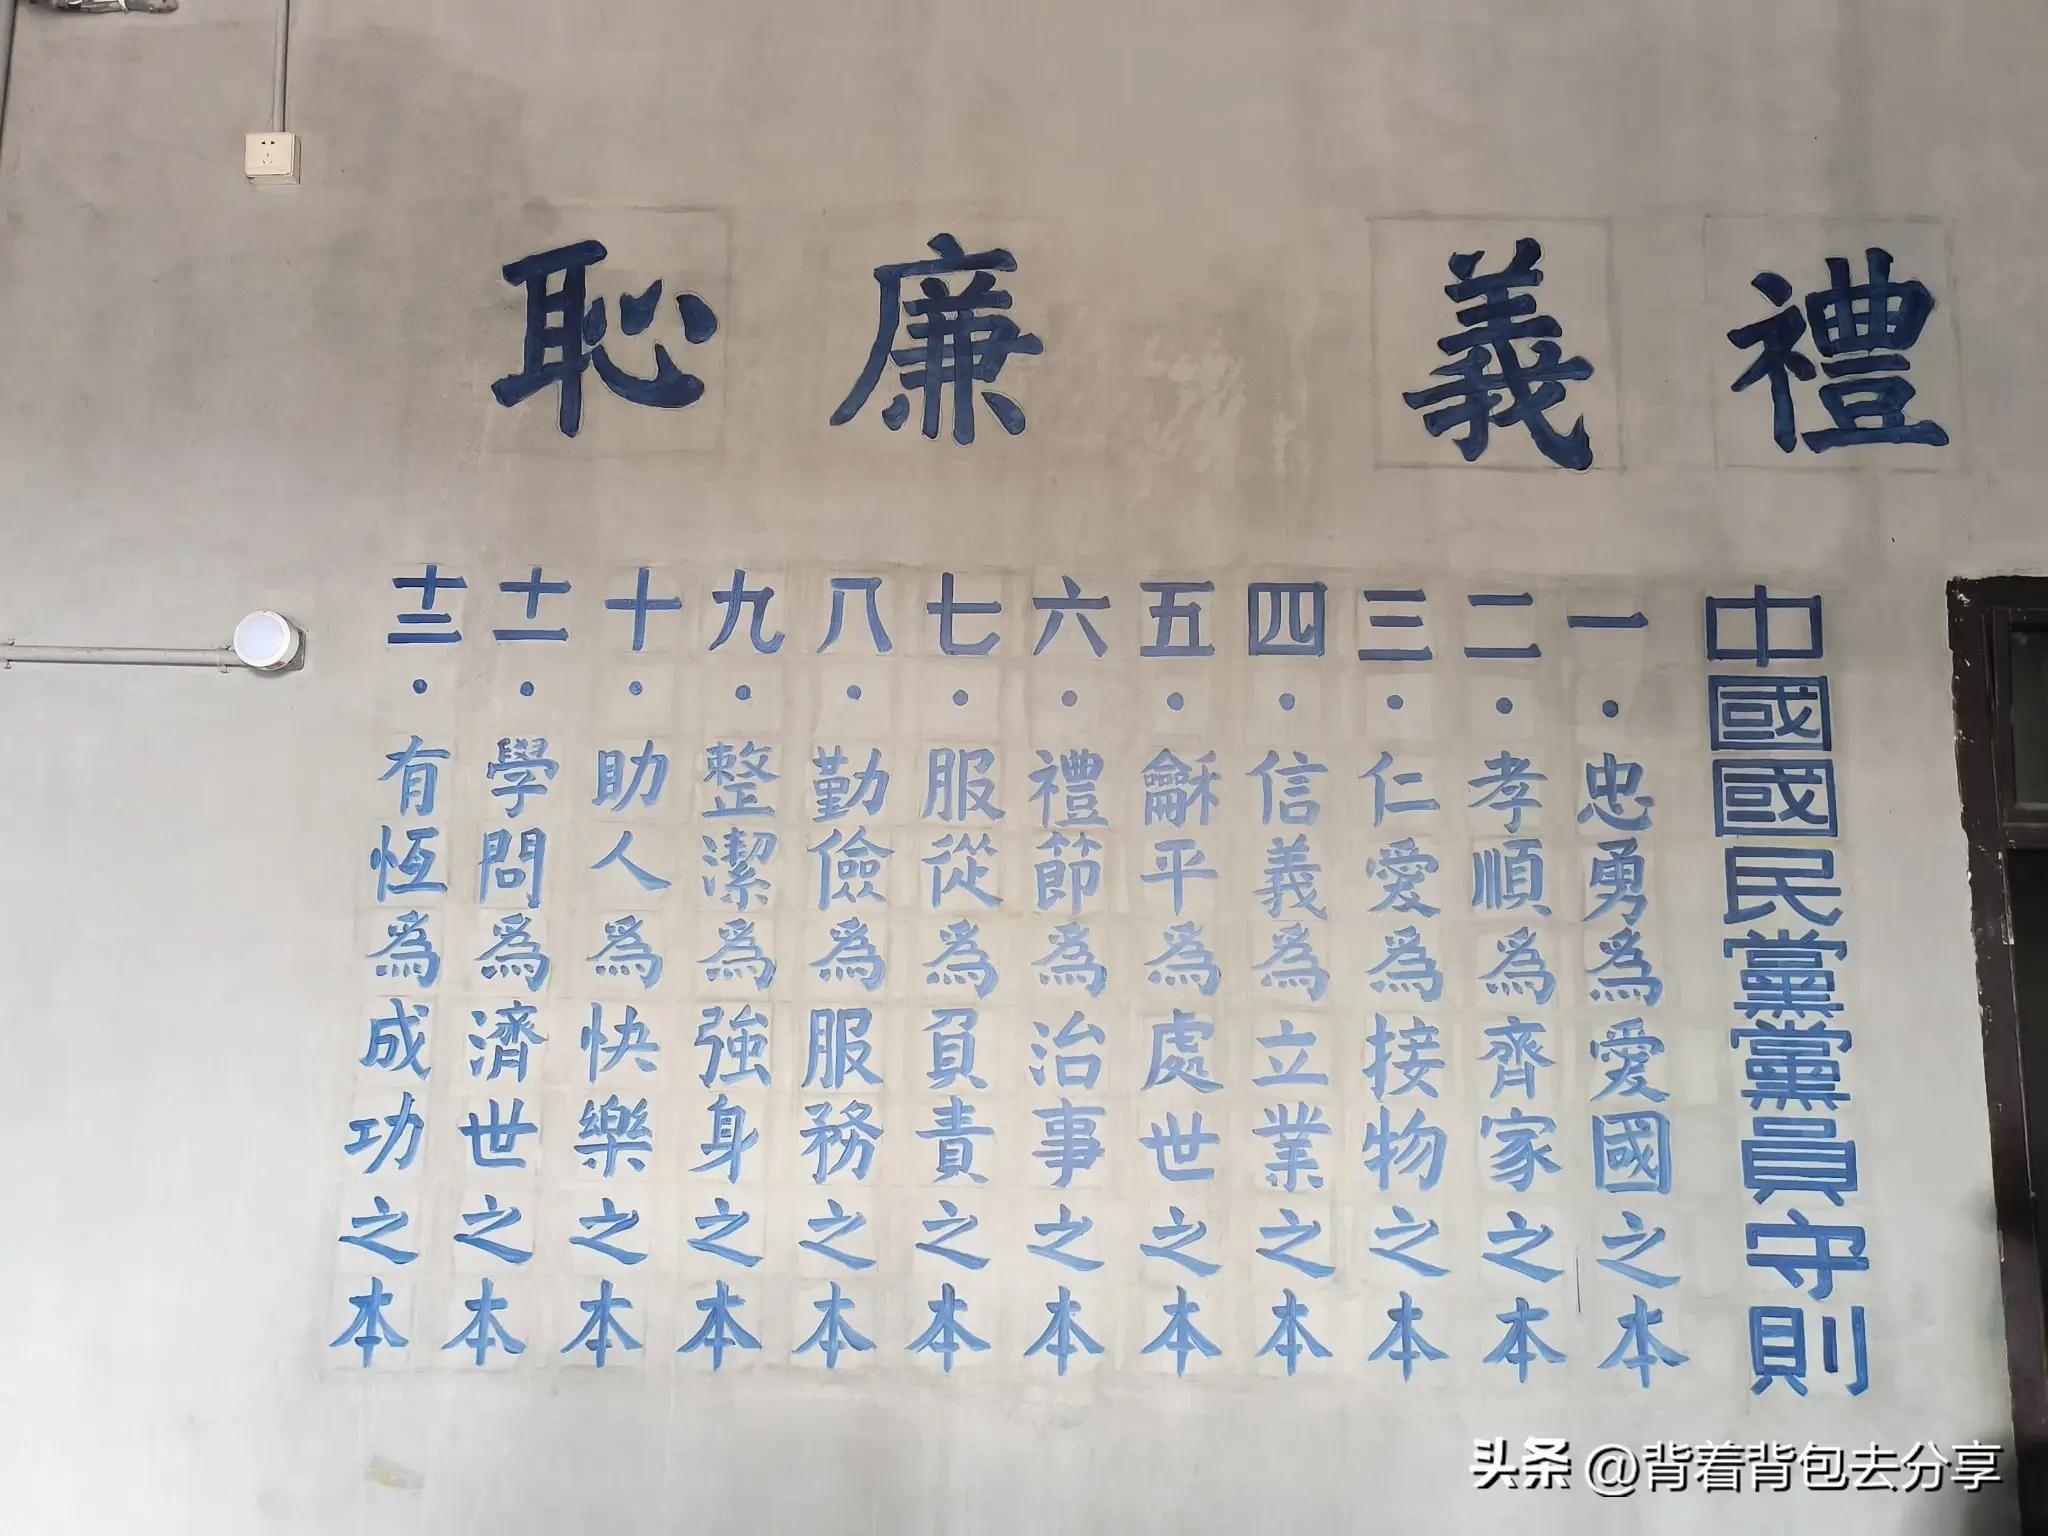 禮義廉恥
中國國民黨黨員守則
一·忠勇爲愛國之本
二·孝順爲齊家之本
三·仁愛爲接物之本
四·信義爲立業之本
五·龢平爲處世之本
六·禮節爲治事之本
七·服從爲負責之本
八·勤儉爲服務之本
九·整潔爲強身之本
十·助人爲快樂之本
十一·學問爲濟世之本
十二·有恆爲成功之本
头条 @背着背包去分享